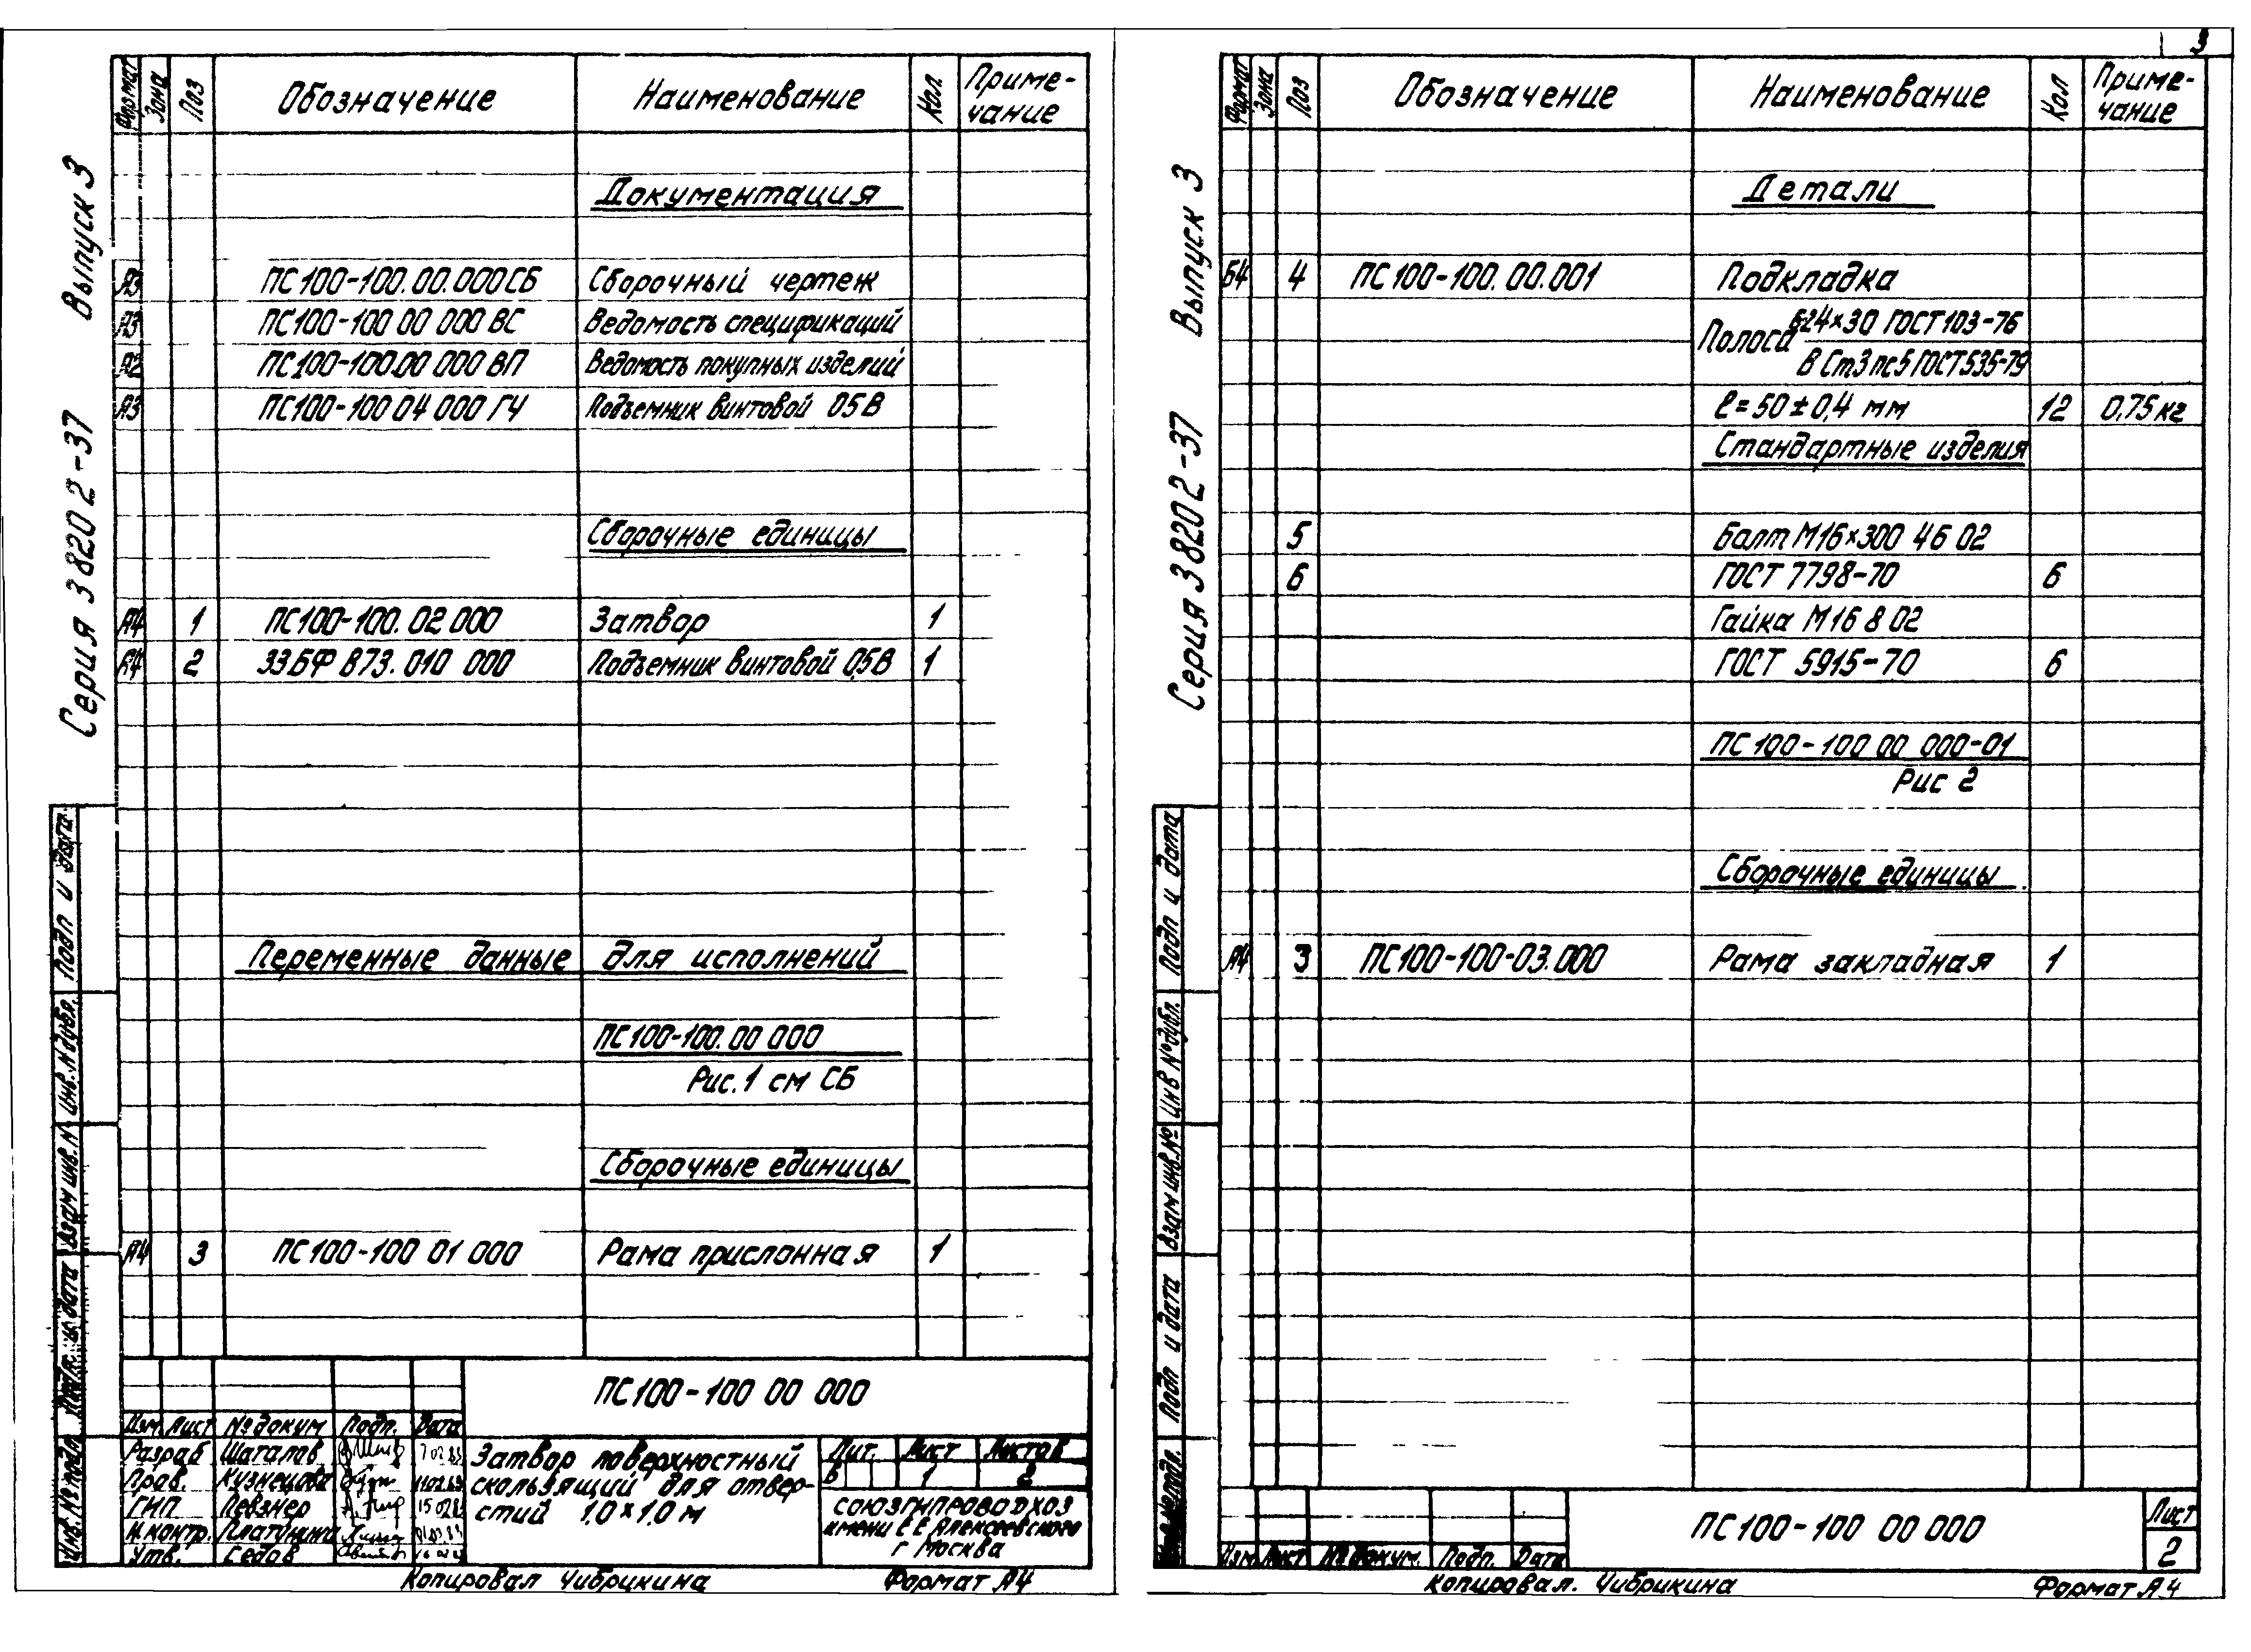 3
Выпуск 3
Серия 3 820 2-37
Формат Зона Поз Обозначение Наименование Кол Приме-
чание
Документация
А3 ПС100-100.00.000СБ Сборочный чертеж
А3 ПС100-100 00 000 ВС Ведомость спецификаций
А2 ПС100-100.00 000 ВП Ведомость покупных изделий
А3 ПС100-100 04 000 ГЧ Подъемник винтовой 05В
Сборочные единицы
А4 1 ПС100-100. 02 000 Затвор 1
А4 2 33.БФ 873. 010 000 Подъемник винтовой 0,5В 1
Переменные данные для исполнений
ПС100-100. 00 000
Рис. 1 см СБ
Сборочные единицы
А4 3 ПС100-100 01 000 Рама прислонная 1
Подп и дата
Инв. N дубл.
Взам инв. N
Подп. и дата
Инв. № подл.
ПС100-100 00 000
Изм. Лист № докум Подп. Дата
Разраб Шаталов
Пров. Кузнецова
ГИП Певзнер
Н.контр. Платунина
Утв. Седов
Затвор поверхностный
скользящий для отвер-
стий 1,0×1,0 м
Лит. Лист Листов
В 1 2
СОЮЗГИПРОВОДХОЗ
имени Е Е Алексеевского
г Москва
Копировал Чибрикина Формат А4
Выпуск 3
Серия 3 820 2-37
Формат Зона Поз Обозначение Наименование Кол Приме-
чание
Детали
Б4 4 ПС100-100. 00.001 Подкладка
Полоса Б-24×30 ГОСТ103-76
В Ст3 пс5 ГОСТ535-79
ℓ=50±0,4 мм 12 0,75кг
Стандартные изделия
5 Болт М16×300 46 02
6 ГОСТ 7798-70 6
Гайка М16 8 02
ГОСТ 5915-70 6
ПС 100-100 00 000-01
Рис 2
Сборочные единицы
А4 3 ПС100-100-03.000 Рама закладная 1
Подп и дата
Инв № дубл.
Взам инв. №
Подп и дата
Изм Лист № докум. Подп. Дата
ПС100-100 00 000
Лист
2
Копировал. Чибрикина Формат А4